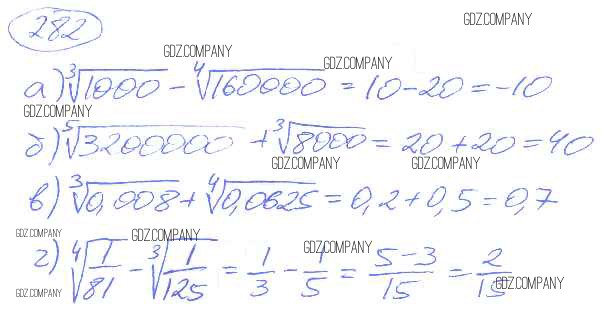 282 GDZ.COMPANY
GDZ.COMPANY GDZ.COMPANY
а) ∛1000 − ∜160000 = 10 − 20 = −10
GDZ.COMPANY
б) ⁵√3200000 + ∛8000 = 20 + 20 = 40
GDZ.COMPANY GDZ.COMPANY
в) ∛0,008 + ∜0,0625 = 0,2 + 0,5 = 0,7
GDZ.COMPANY GDZ.COMPANY GDZ.COMPANY
г) ∜(1/81) − ∛(1/125) = 1/3 − 1/5 = (5−3)/15 = 2/15
GDZ.COMPANY GDZ.COMPANY